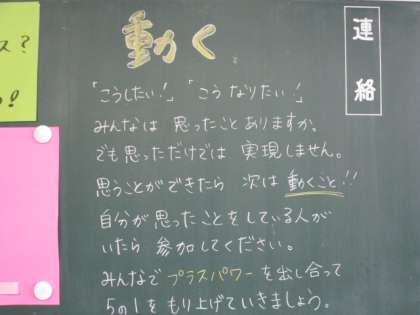 動く
連絡
ス?
!
「こうしたい!」「こうなりたい!」
みんなは 思ったことありますか。
でも思っただけでは 実現しません。
思うことができたら 次は 動くこと!!
自分が思ったことをしている人が
いたら 参加してください。
みんなで プラスパワーを出し合って
5の1をもり上げていきましょう。